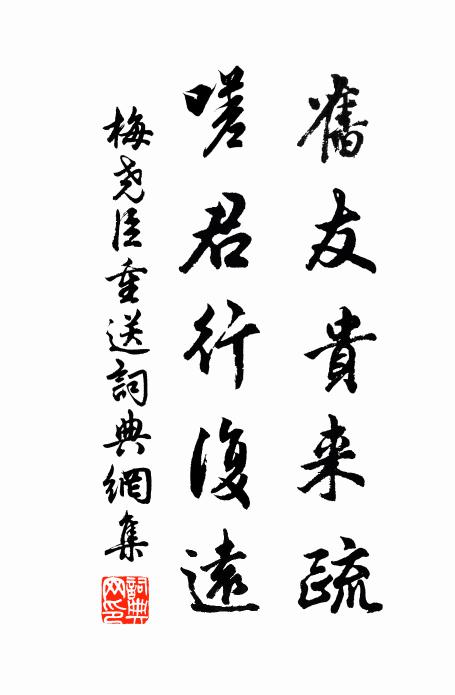 舊友貴来疏
嗟君行復遠
梅尧臣重送詞典網集
詞典網印